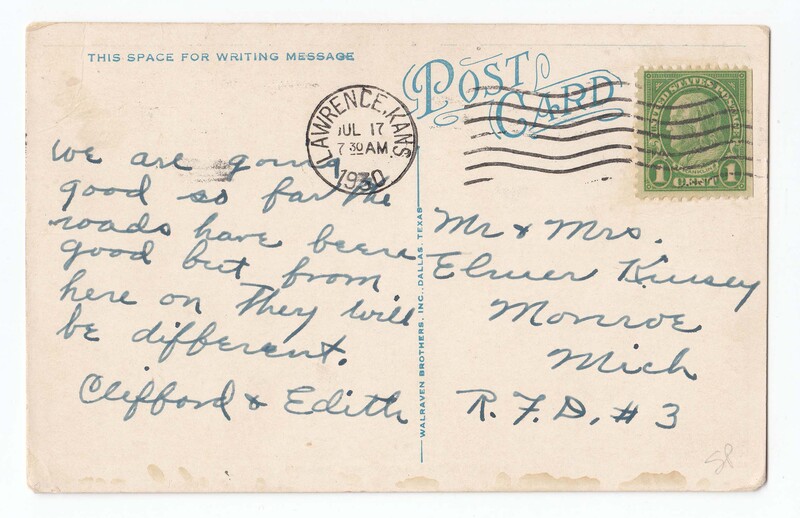 THIS SPACE FOR WRITING MESSAGE
POST CARD
LAWRENCE, KANS
JUL 17
7 30 AM
1930
UNITED STATES POSTAGE
FRANKLIN
1 CENT 1
we are gonna
good so far the
roads have been
good but from
here on They will
be different.
Clifford & Edith
WALRAVEN BROTHERS, INC., DALLAS, TEXAS
Mr & Mrs.
Elmer Kinsey
Monroe
Mich
R. F. D. # 3
58